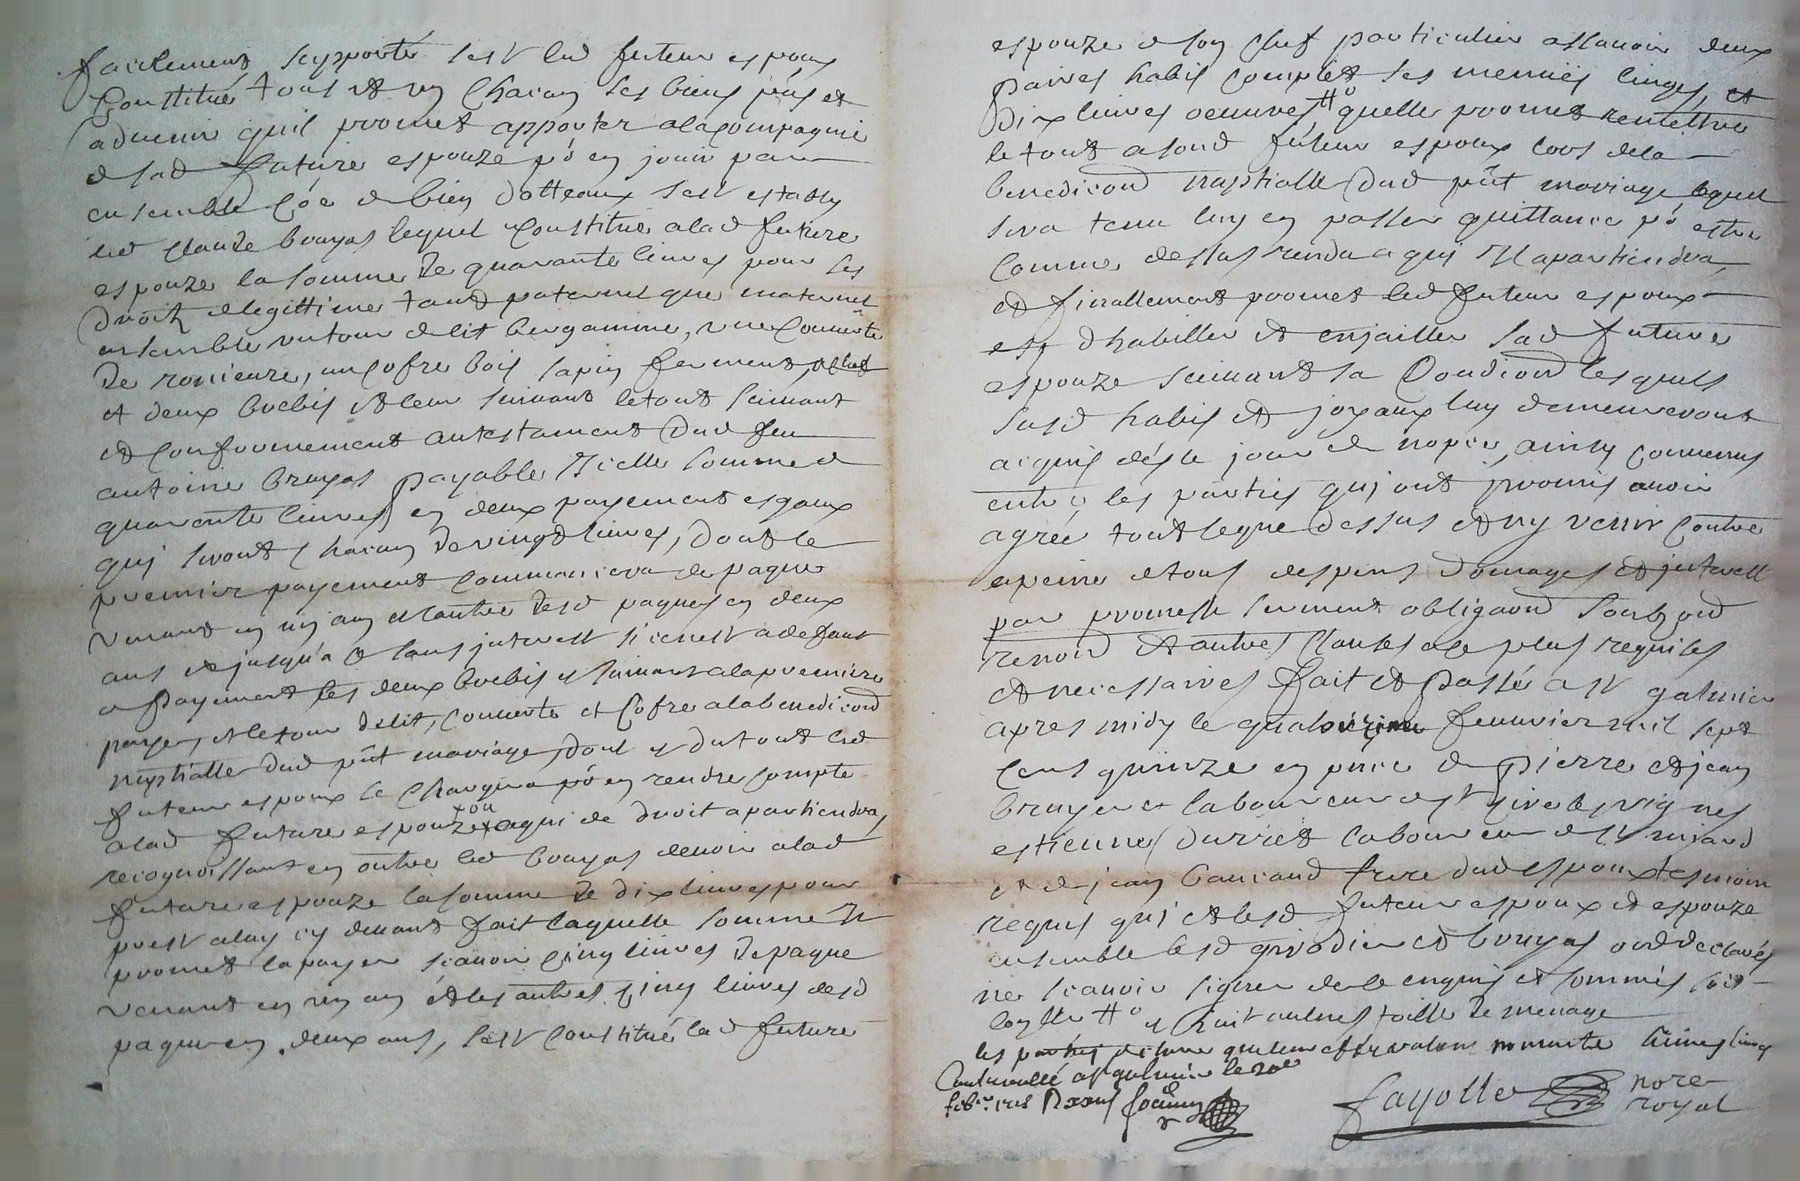 facilement supporter sest led futeur espoux
Constitué tous et un Chacun ses biens pnts et
aduenir quil promet apporter alacompagnie
de sad future espouze po en jouir
ensemble Coe de bien dotteaux sest estably
led Claude bruyas lequel Constitue alad future
espouze la somme de quarante liures pour ses
droitz delegittime tant paternel que maternel
ensemble un tour de lit bergamme, une Couuerte
de , un Cofre bois sapin fermant
et deux brebis et leur suiuant letout suiuant
et Conformement autestament dud feu
antoine bruyas payable Icelle somme de
quarante liures en deux payement esgaux
quj seront Chacun de vingt liures, dont le
premier payement Commancera de paque
venant en un an et lautre desd paques en deux
ans et jusqua Ce sans jnterest sicenest adefaut
de payement les deux brebis et suiuant alapremiere
, et letour de lit, Couuerte et Cofre alabenedicond
nuptialle dud pnt mariage, dont et dutout led
futeur espoux se Chargera po en rendre Compte
alad future espouze ou aqui de droit apartiendra,
recognoissant en outre led bruyas deuoir alad
future espouze lasomme de dix liures pour
prest aluy cy deuant fait laquelle somme Il
promet lapayer scauoir Cinq liures de paque
venant en un an et les autres Cinq liures desd
paques en deux ans, sest Constitué lad future
espouze de son Chef particulier assauoir deux
paires habis Complet ses menües linges, et
dix liures oeuures quelle promet remettre
letout asond futeur espoux lors dela
benedicond nuptialle dud pnt mariage lequel
sera tenu luy en passer quittance po estre
Comme dessus rendu aqui Il apartiendra,
et finallement promet led futeur espoux
dhabiller et enjailler sad future
espouze suiuant sa Condiond lesquels
susd habis et joyaux luy demeureront
acquis dés le jour de nopce, ainsy Conuenus
entre les parties quj ont promis auoir
agréé tout ceque dessus et ny venir Contre
apeine detous despens domages et jnterest
par promesse serment obligaond
renond et autres Clauses ace plus requises
et necessaires fait et passé a st galmier
apres midy le quatorzieme feurier mil sept
Cens quinze en pnce de pierre et jean
bruyere laboureur de st
estienne durret laboureur de st
et de jean bancaud frere dud espoux tesmoin
requis quj et lesd futeur espoux et espouze
ensemble lesd griodier et bruyas ont declarés
ne scauoir signer dece enquis et sommés
et huit aulnes toille de menage
les parties
Controllé a st galmier le 20e
feber 1715
fayolle nore
royal